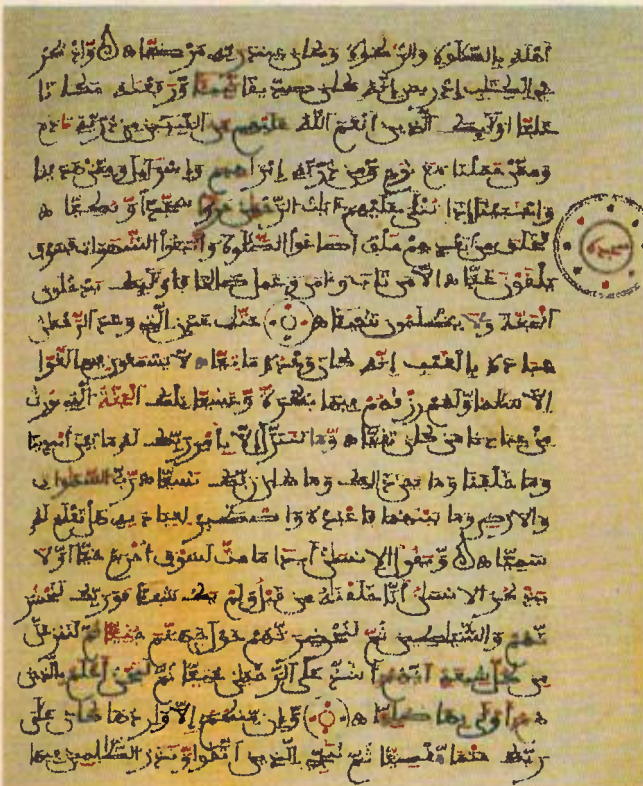 أهله بالصلوة والزكوة وكان عند ربه مرضيا واذكر
في الكتب إدريس إنه كان صديقا نبيئا ورفعنه مكانا
عليا أوليك الذين أنعم الله عليهم من النبيين من ذرية ءادم
وممن حملنا مع نوح ومن ذرية إبراهيم وإسراءيل وممن هدينا
واجتبينا إذا تتلى عليهم ءايت الرحمن خروا سجدا وبكيا
سجدة
فخلف من بعدهم خلف أضاعوا الصلوة واتبعوا الشهوات فسوف
يلقون غيا إلا من تاب وءامن وعمل صالحا فأوليك يدخلون
الجنة ولا يظلمون شيئا جنت عدن التي وعد الرحمن
عباده بالغيب إنه كان وعده ماتيا لا يسمعون فيها لغوا
إلا سلما ولهم رزقهم فيها بكرة وعشيا تلك الجنة التي نورث
من عبادنا من كان تقيا وما نتنزل إلا بأمر ربك له ما بين أيدينا
وما خلفنا وما بين ذلك وما كان ربك نسيا رب السموات
والأرض وما بينهما فاعبده واصطبر لعبادته هل تعلم له
سميا ويقول الإنسن أءذا ما مت لسوف أخرج حيا أولا
يذكر الإنسن أنا خلقنه من قبل ولم يك شيئا فوربك لنحشر
نهم والشيطين ثم لنحضرنهم حول جهنم جثيا ثم لننزعن
من كل شيعة أيهم أشد على الرحمن عتيا ثم لنحن أعلم بالذين
هم أولى بها صليا وإن منكم إلا واردها كان على
ربك حتما مقضيا ثم ننجي الذين اتقوا ونذر الظلمين فيها